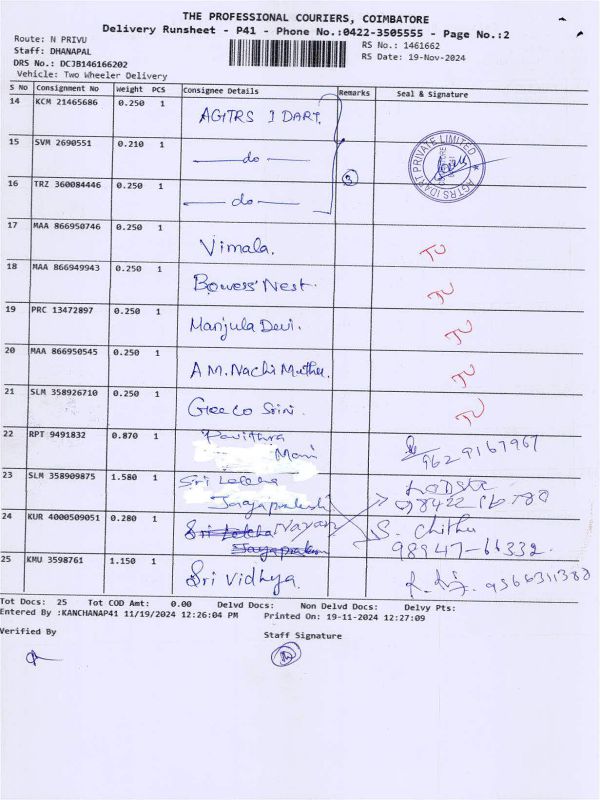 THE PROFESSIONAL COURIERS, COIMBATORE
Delivery Runsheet - P41 - Phone No.:0422-3505555 - Page No.:2
Route: N PRIVU
Staff: DHANAPAL
DRS No.: DCJB146166202
Vehicle: Two Wheeler Delivery
RS No.: 1461662
RS Date: 19-Nov-2024
S No Consignment No Weight PCS Consignee Details Remarks Seal & Signature
14 KCM 21465686 0.250 1 AGTRS IDART.
15 SVM 2690551 0.210 1 — do —
AGTRS IDART PRIVATE LIMITED
16 TRZ 360084446 0.250 1 — do — 3
17 MAA 866950746 0.250 1 Vimala.
18 MAA 866949943 0.250 1 Nest.
19 PRC 13472897 0.250 1 Manjula Devi.
20 MAA 866950545 0.250 1 A M. Nachi Muthu.
21 SLM 358926710 0.250 1
22 RPT 9491832 0.870 1 Pavithra
Mani
23 SLM 358909875 1.580 1 Sri
24 KUR 4000509051 0.280 1 Nayan S. Chithu
98947-66332.
25 KMU 3598761 1.150 1 Sri Vidhya.
Tot Docs: 25 Tot COD Amt: 0.00 Delvd Docs: Non Delvd Docs: Delvy Pts:
Entered By :KANCHANAP41 11/19/2024 12:26:04 PM Printed On: 19-11-2024 12:27:09
Verified By
Staff Signature